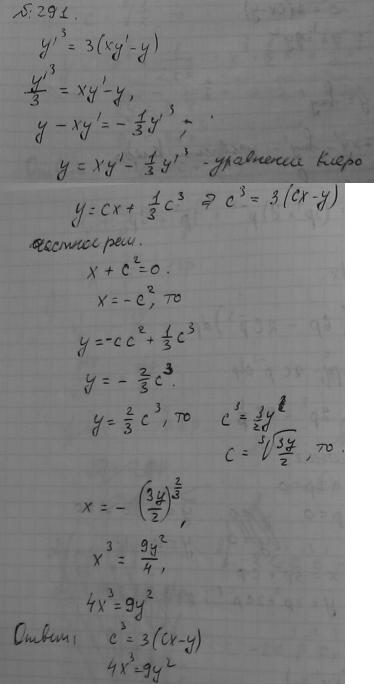 № 291.
y'³ = 3(xy' - y)
y'³/3 = xy' - y,
y - xy' = -1/3 y'³,
y = xy' - 1/3 y'³ - уравнение Клеро
y = cx + 1/3 c³ ⇒ c³ = 3(cx - y)
частное реш.
x + c² = 0.
x = -c², то
y = -cc² + 1/3 c³
y = -2/3 c³.
y = 2/3 c³, то c³ = 3/2 y
c = ∛(3y/2), то.
x = -(3y/2)^(2/3),
x³ = 9y²/4,
4x³ = 9y²
Ответ: c³ = 3(cx - y)
4x³ = 9y²